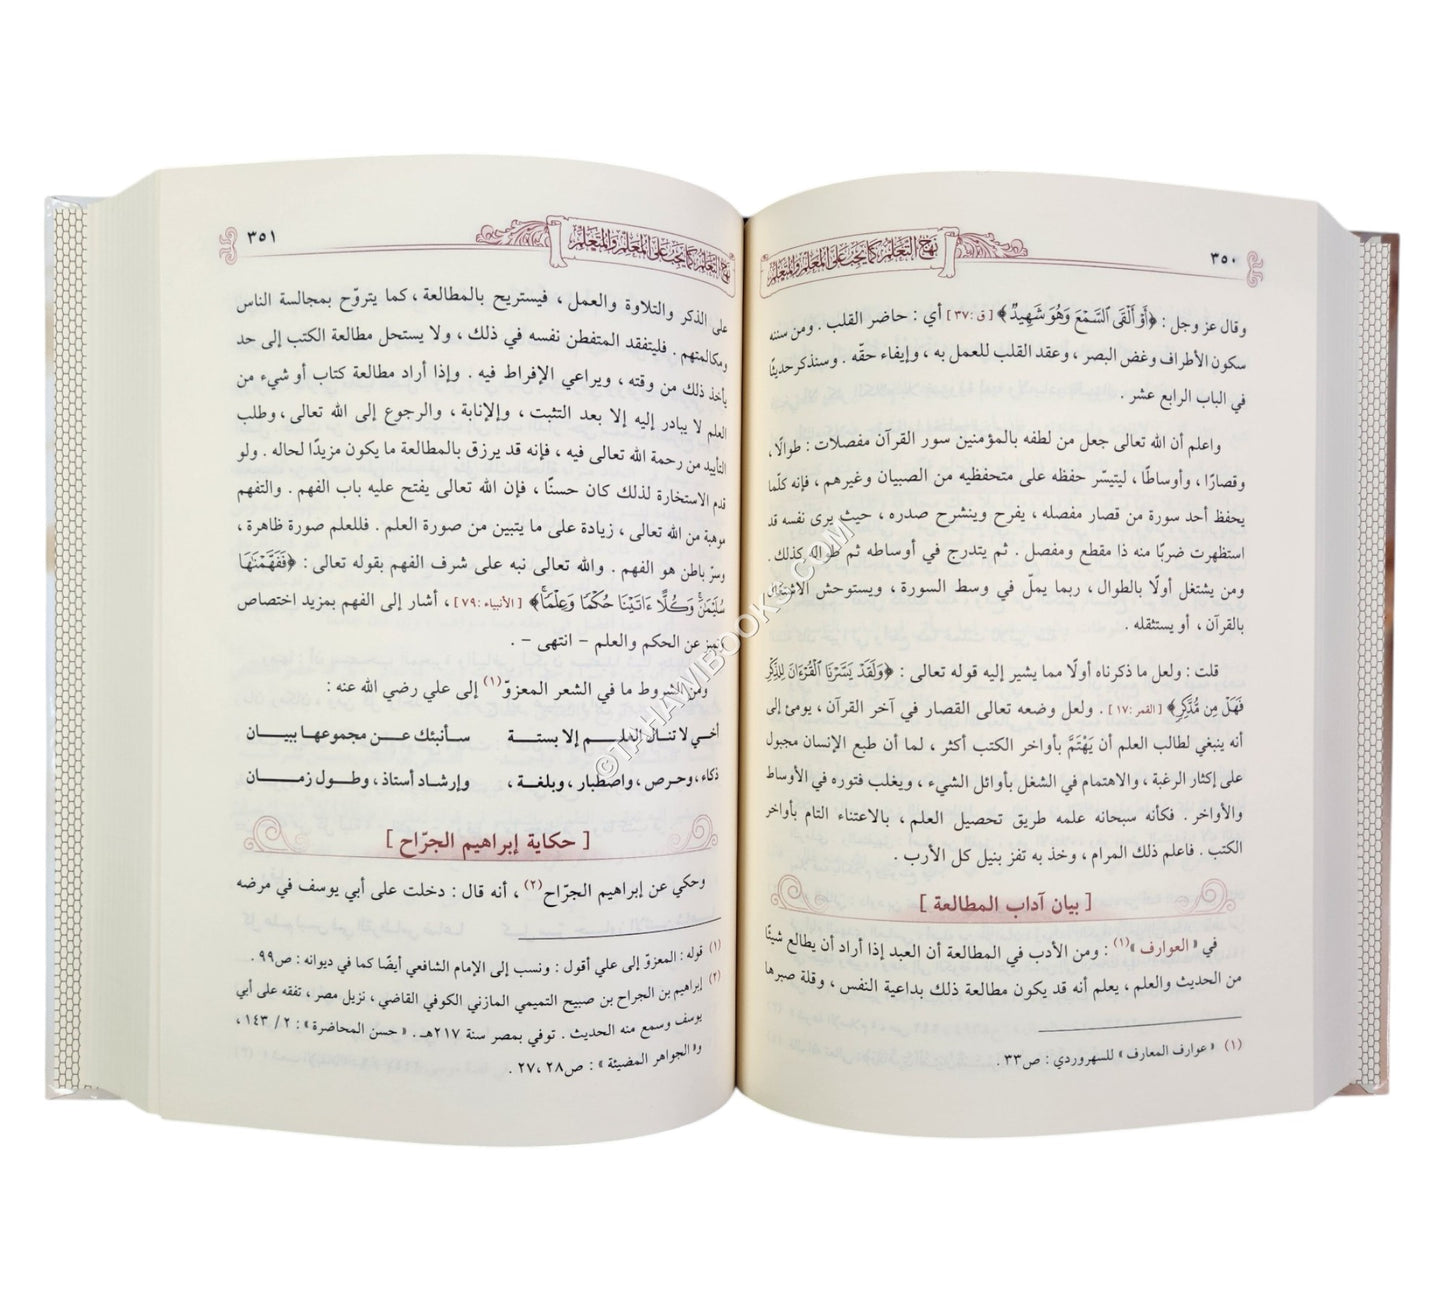 ٣٥٠
نهج التعلم كما يجب على المعلم والمتعلم
وقال عز وجل : ﴿أَوْ أَلْقَى ٱلسَّمْعَ وَهُوَ شَهِيدٌ﴾ [ق :٣٧] أي : حاضر القلب . ومن سننه
سكون الأطراف وغض البصر ، وعقد القلب للعمل به ، وإيفاء حقّه . وسنذكر حديثًا
في الباب الرابع عشر .
واعلم أن الله تعالى جعل من لطفه بالمؤمنين سور القرآن مفصلات : طوالًا ،
وقصارًا ، وأوساطًا ، ليتيسّر حفظه على متحفظيه من الصبيان وغيرهم ، فإنه كلّما
يحفظ أحد سورة من قصار مفصله ، يفرح وينشرح صدره ، حيث يرى نفسه قد
استظهرت ضربًا منه ذا مقطع ومفصل . ثم يتدرج في أوساطه ثم طواله كذلك .
ومن يشتغل أولًا بالطوال ، ربما يملّ في وسط السورة ، ويستوحش الاشتغال
بالقرآن ، أو يستثقله .
قلت : ولعل ما ذكرناه أولًا مما يشير إليه قوله تعالى : ﴿وَلَقَدْ يَسَّرْنَا ٱلْقُرْءَانَ لِلذِّكْرِ
فَهَلْ مِن مُّدَّكِرٍ﴾ [القمر :١٧] . ولعل وضعه تعالى القصار في آخر القرآن ، يومئ إلى
أنه ينبغي لطالب العلم أن يَهْتَمَّ بأواخر الكتب أكثر ، لما أن طبع الإنسان مجبول
على إكثار الرغبة ، والاهتمام في الشغل بأوائل الشيء ، ويغلب فتوره في الأوساط
والأواخر . فكأنه سبحانه علمه طريق تحصيل العلم ، بالاعتناء التام بأواخر
الكتب . فاعلم ذلك المرام ، وخذ به تفز بنيل كل الأرب .
[ بيان آداب المطالعة ]
في « العوارف »(١) : ومن الأدب في المطالعة أن العبد إذا أراد أن يطالع شيئًا
من الحديث والعلم ، يعلم أنه قد يكون مطالعة ذلك بداعية النفس ، وقلة صبرها
(١) « عوارف المعارف » للسهروردي : ص٣٣ .
٣٥١
نهج التعلم كما يجب على المعلم والمتعلم
على الذكر والتلاوة والعمل ، فيستريح بالمطالعة ، كما يتروّح بمجالسة الناس
ومكالمتهم . فليتفقد المتفطن نفسه في ذلك ، ولا يستحل مطالعة الكتب إلى حد
يأخذ ذلك من وقته ، ويراعي الإفراط فيه . وإذا أراد مطالعة كتاب أو شيء من
العلم لا يبادر إليه إلا بعد التثبت ، والإنابة ، والرجوع إلى الله تعالى ، وطلب
التأييد من رحمة الله تعالى فيه ، فإنه قد يرزق بالمطالعة ما يكون مزيدًا لحاله . ولو
قدم الاستخارة لذلك كان حسنًا ، فإن الله تعالى يفتح عليه باب الفهم . والتفهم
موهبة من الله تعالى ، زيادة على ما يتبين من صورة العلم . فللعلم صورة ظاهرة ،
وسرّ باطن هو الفهم . والله تعالى نبه على شرف الفهم بقوله تعالى : ﴿فَفَهَّمْنَٰهَا
سُلَيْمَٰنَ وَكُلًّا ءَاتَيْنَا حُكْمًا وَعِلْمًا﴾ [الأنبياء :٧٩] ، أشار إلى الفهم بمزيد اختصاص
تميز عن الحكم والعلم – انتهى – .
ومن الشروط ما في الشعر المعزوّ(١) إلى علي رضي الله عنه :
أخي لا تنال العلم إلا بستة سأنبئك عن مجموعها ببيان
ذكاء ، وحرص ، واصطبار ، وبلغة ، وإرشاد أستاذ ، وطول زمان
[ حكاية إبراهيم الجرّاح ]
وحكي عن إبراهيم الجرّاح(٢) ، أنه قال : دخلت على أبي يوسف في مرضه
(١) قوله : المعزوّ إلى علي أقول : ونسب إلى الإمام الشافعي أيضًا كما في ديوانه : ص٩٩ .
(٢) إبراهيم بن الجراح بن صبيح التميمي المازني الكوفي القاضي ، نزيل مصر ، تفقه على أبي
يوسف وسمع منه الحديث . توفي بمصر سنة ٢١٧هـ . « حسن المحاضرة » : ٢ / ١٤٣ ،
و« الجواهر المضيئة » : ص٢٨ ،٢٧ .
©TAHAWIBOOKS.COM